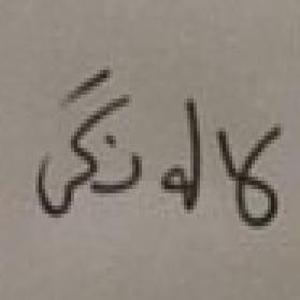 کالونگی